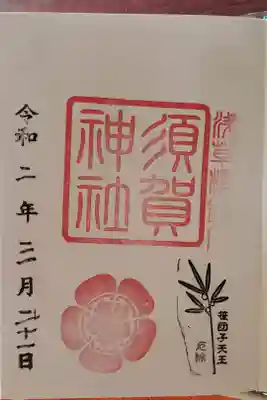 浅草橋
須賀
神社
令和二年三月二十一日
笹団子天王
厄除